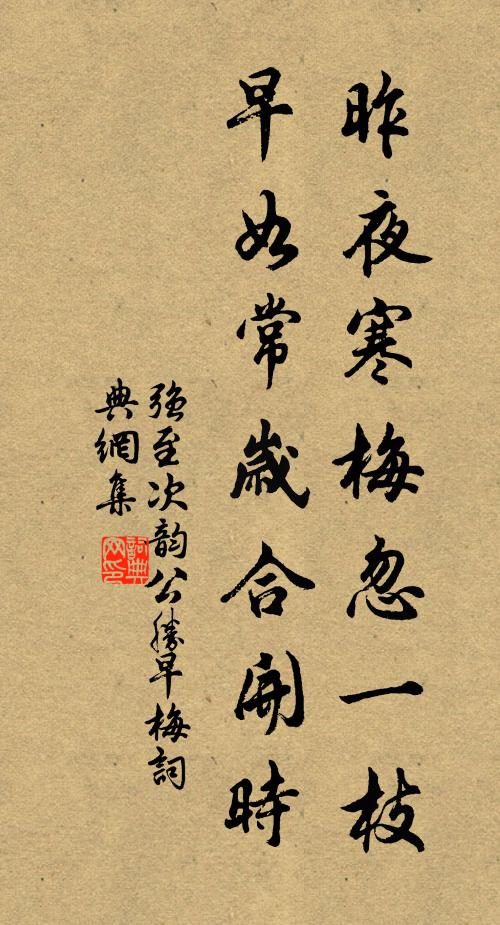 昨夜寒梅忽一枝
早如常歲合開時
強至次韵公勝早梅詞
典網集
詞典网印